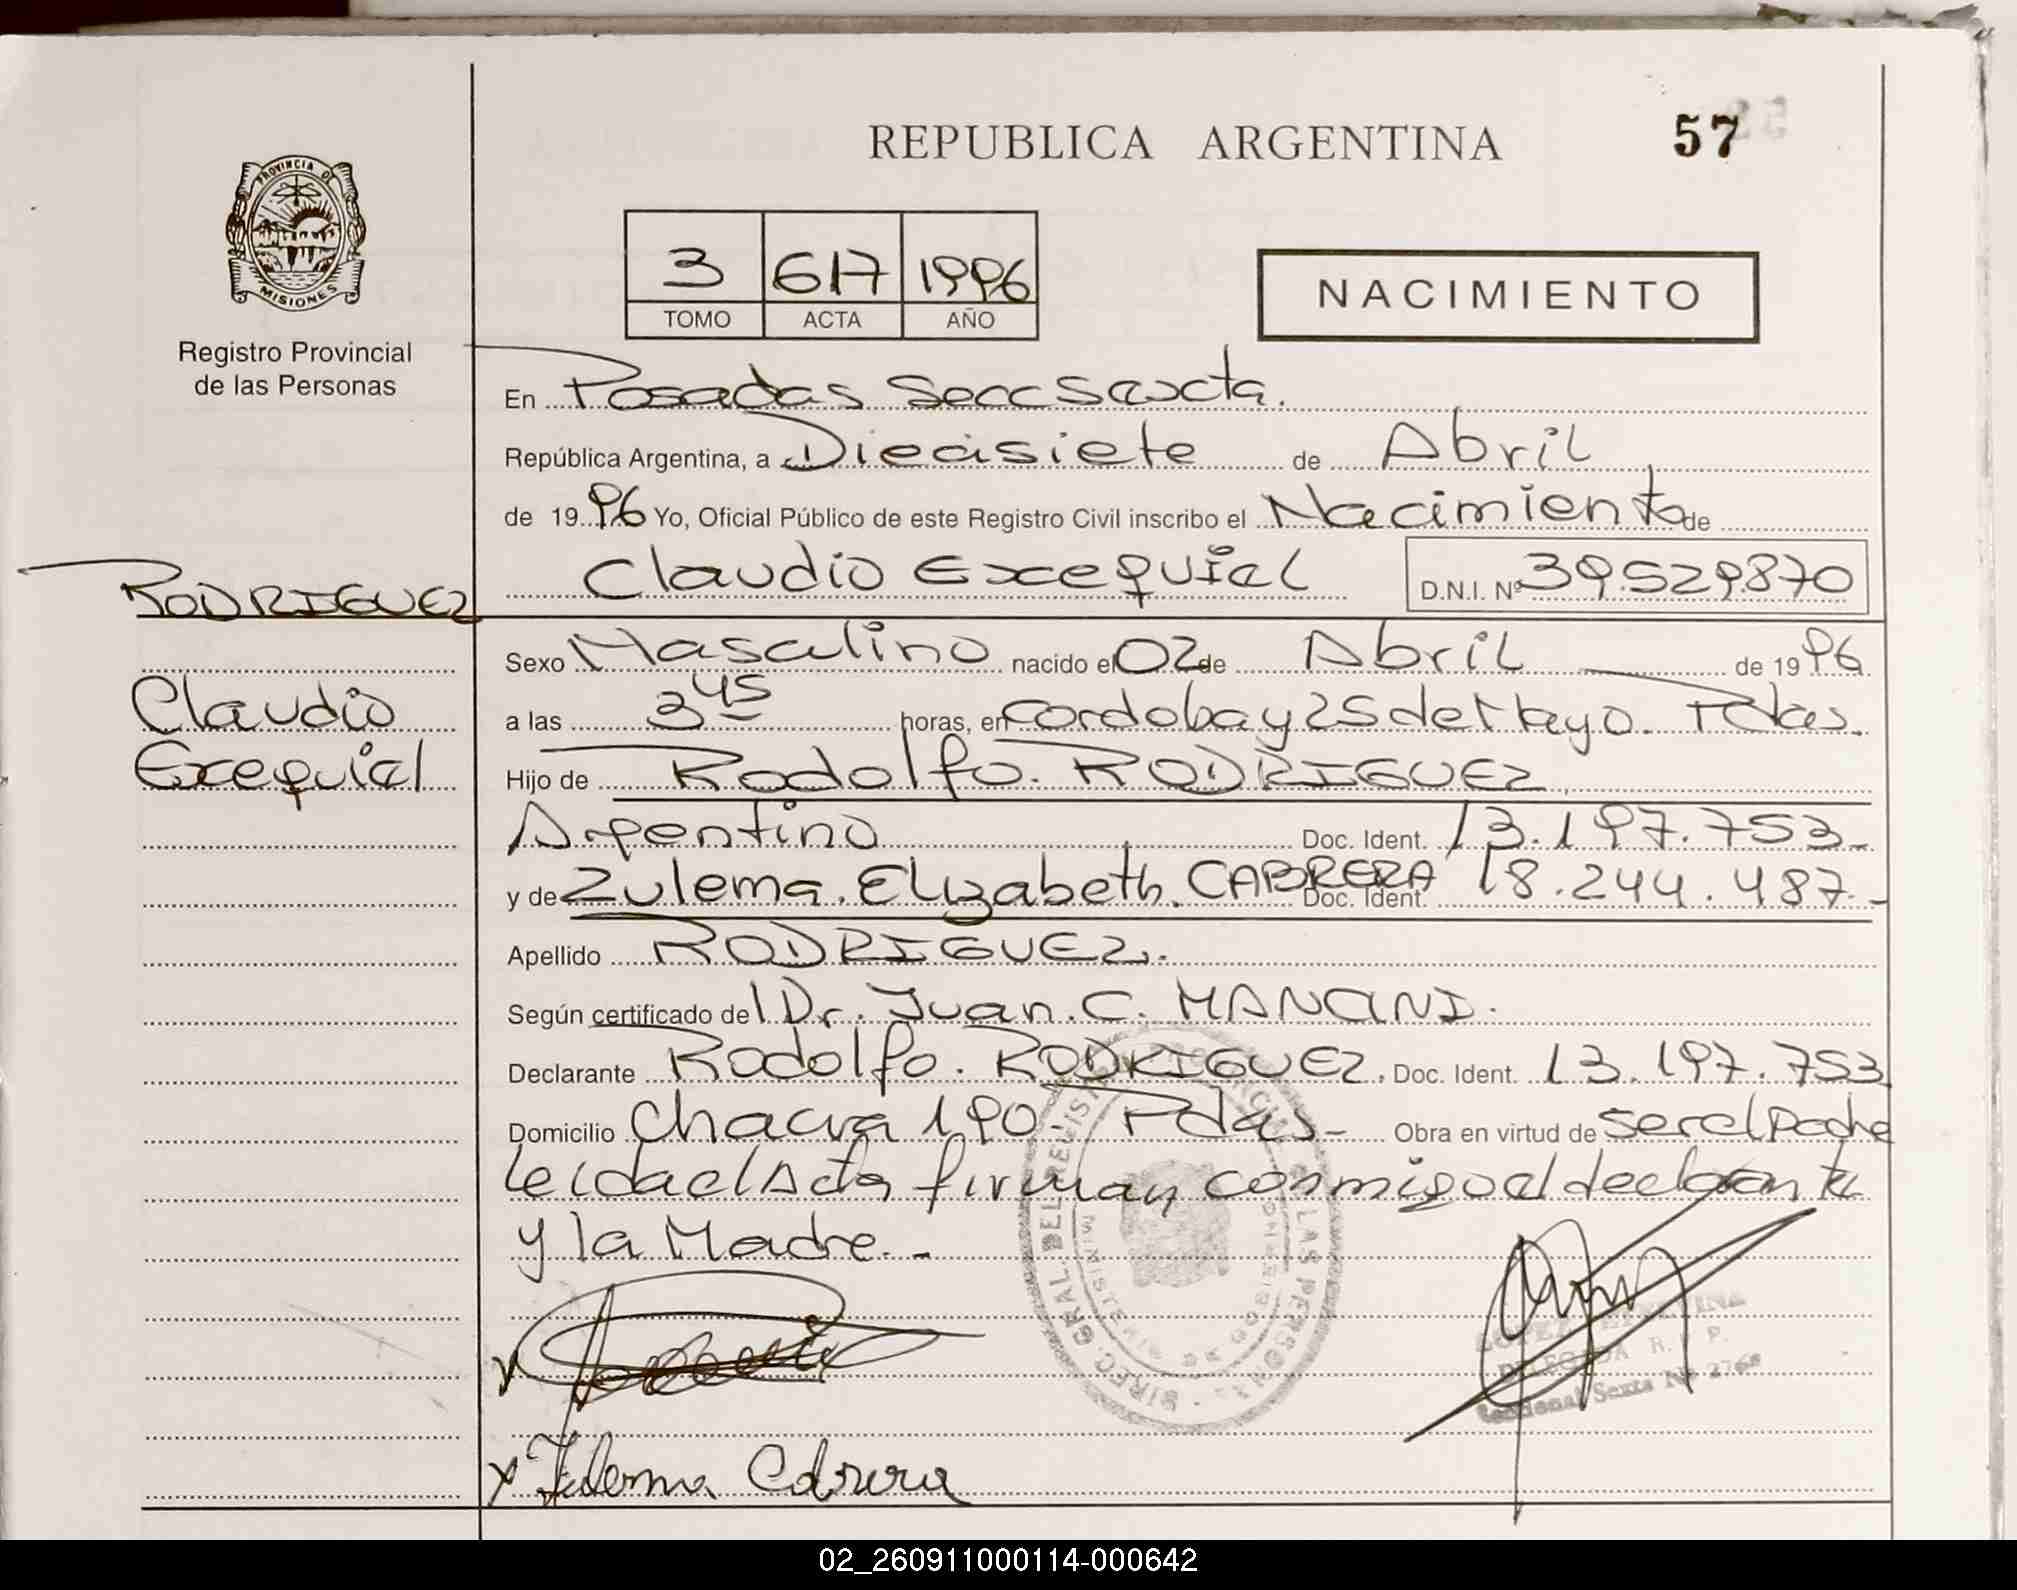 REPUBLICA ARGENTINA
57
PROVINCIA DE
MISIONES
Registro Provincial
de las Personas
3 617 1996
TOMO ACTA AÑO
NACIMIENTO
En Posadas Secc Sexta.
República Argentina, a Diecisiete de Abril
de 1996 Yo, Oficial Público de este Registro Civil inscribo el Nacimiento de
RODRIGUEZ
Claudio Exequiel D.N.I. Nº 39.529.870
Sexo Masculino nacido el 02 de Abril de 1996
Claudio
a las 3 45 horas, en Cordoba y 25 de Mayo. Pdas.
Exequiel
Hijo de Rodolfo. RODRIGUEZ
Argentino Doc. Ident. 13.197.753-
y de Zulema. Elizabeth. CABRERA Doc. Ident. 18.244.487-
Apellido RODRIGUEZ.
Según certificado del Dr. Juan. C.
Declarante Rodolfo. RODRIGUEZ. Doc. Ident. 13.197.753
Domicilio Chacra 190- Pdas- Obra en virtud de ser el padre
leida el Acta firman conmigo el declarante
y la Madre.-
DIREC. GRAL. DEL REGISTRO PROVINCIAL DE LAS PERSONAS
MINISTERIO DE GOBIERNO
DELEGADA R. P.
Seccional Sexta Nº 2768
x Zulema Cabrera
02_260911000114-000642